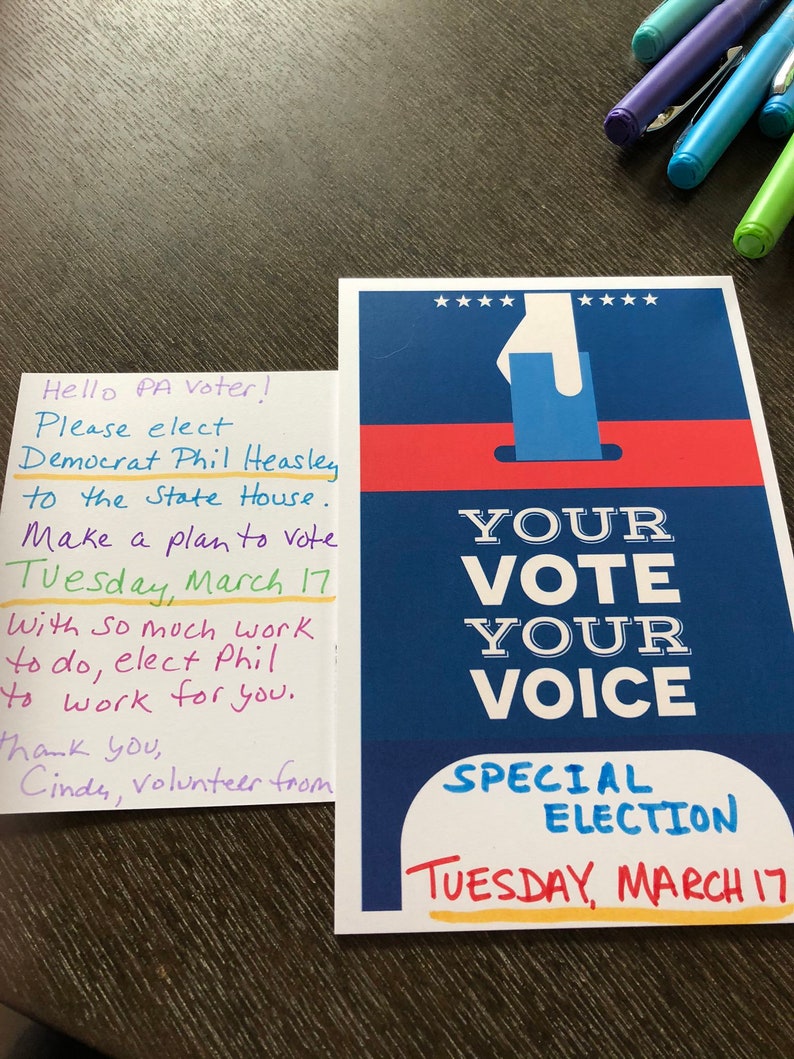 Hello PA Voter!
Please elect
Democrat Phil Heasley
to the State House.
Make a plan to vote
Tuesday, March 17
With so much work
to do, elect Phil
to work for you.
Thank you,
Cindy, volunteer from
YOUR
VOTE
YOUR
VOICE
SPECIAL
ELECTION
TUESDAY, MARCH 17